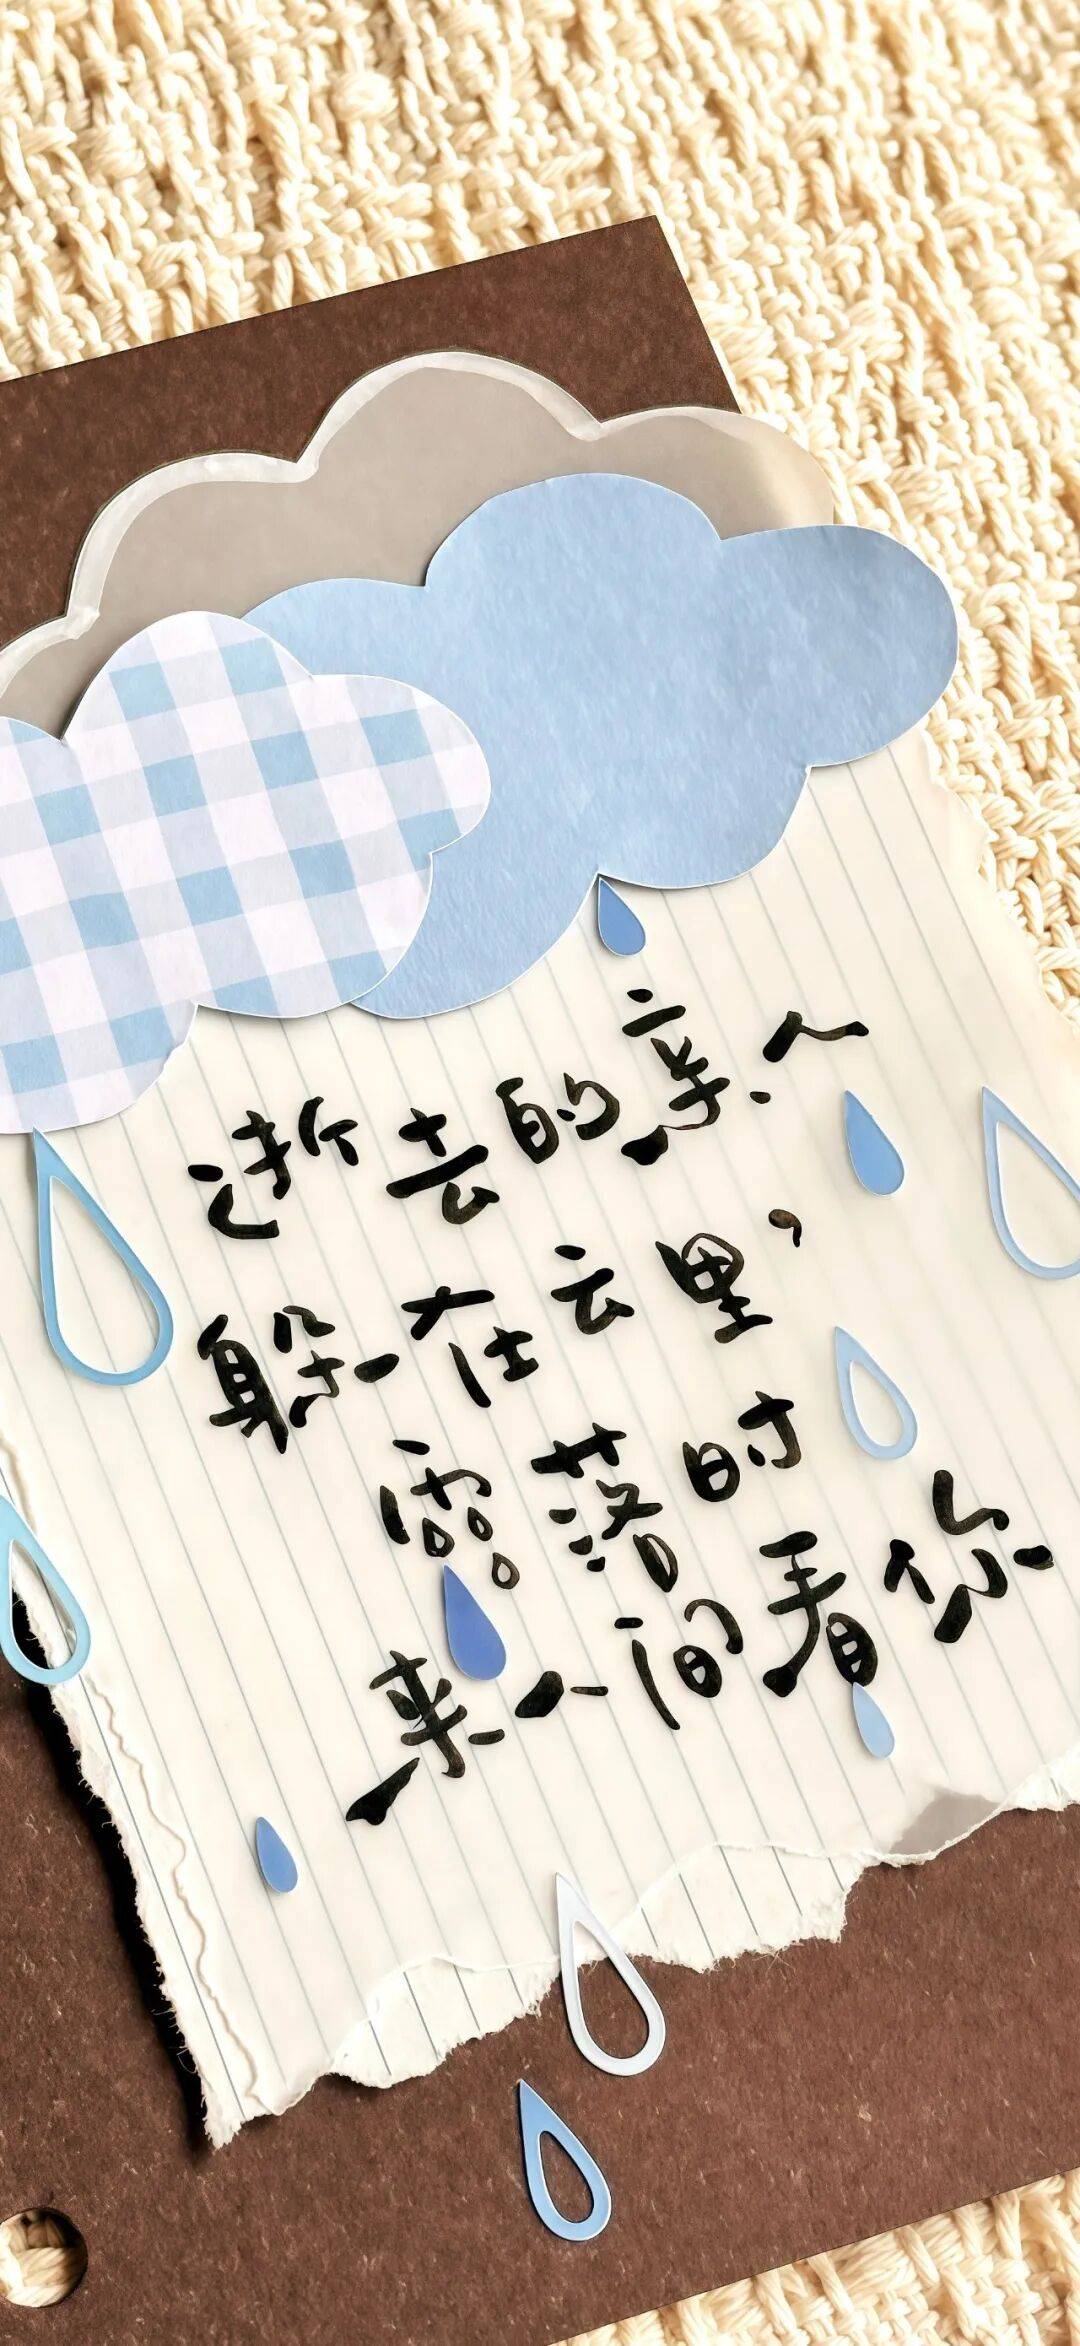 逝去的亲人
躲在云里，
雨落时
来人间看你